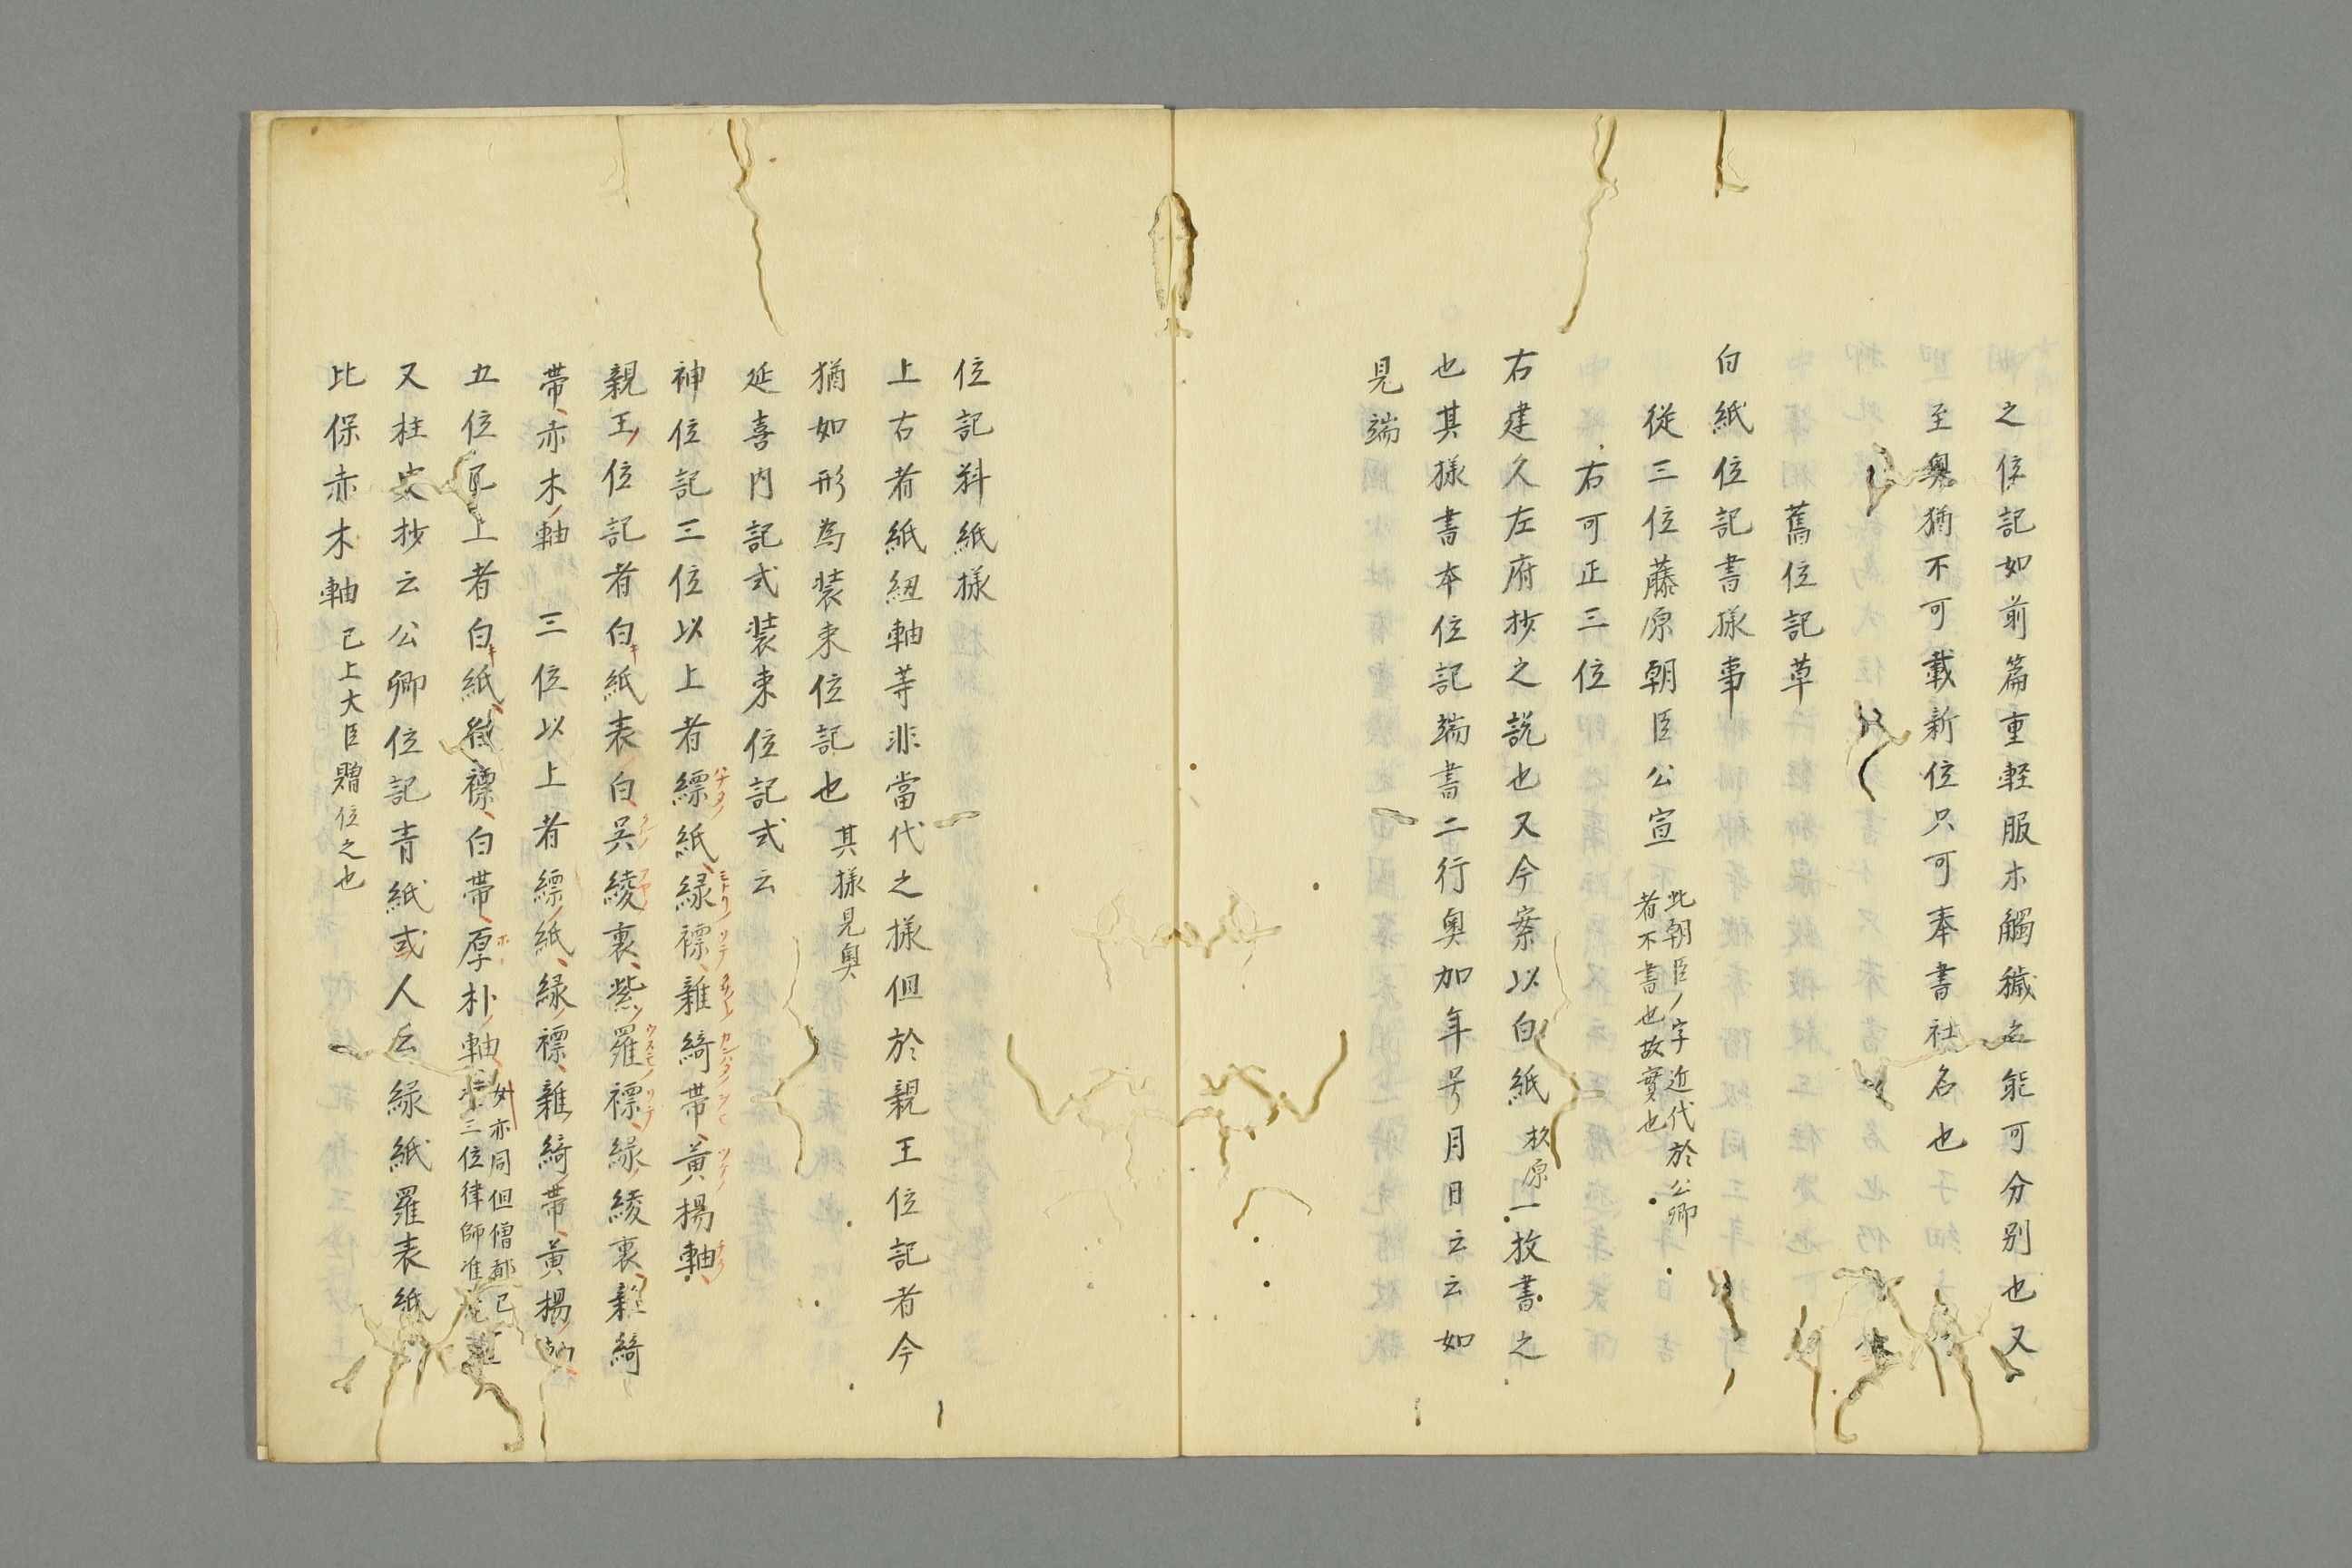 之位記如前篇重軽服ホ觸穢之能可分別也又
至奥猶不可載新位只可奉書社名也
舊位記草
白紙位記書様事
従三位藤原朝臣公宣
此朝臣ノ字近代於公卿
者不書也故實也
右可正三位
右建久左府抄之説也又今案以白紙杉原一枚書之
也其様書本位記端書二行奥加年号月日云云如
見端
位記料紙様
上古者紙紐軸等非當代之様但於親王位記者今
猶如形為装束位記也其様見奥
延喜内記式装束位記式云
神位記三位以上者縹紙緑褾雜綺帯黄楊軸
親王位記者白紙表白呉綾裏紫羅褾緑綾裏雜綺
帯赤木軸 三位以上者縹紙緑褾雜綺帯黄楊軸
五位以上者白紙褾白帯厚朴軸
女亦同但僧都已上
准三位律師准
又柱史抄云公卿位記青紙或人云緑紙羅表紙
比保赤木軸已上大臣贈位之也